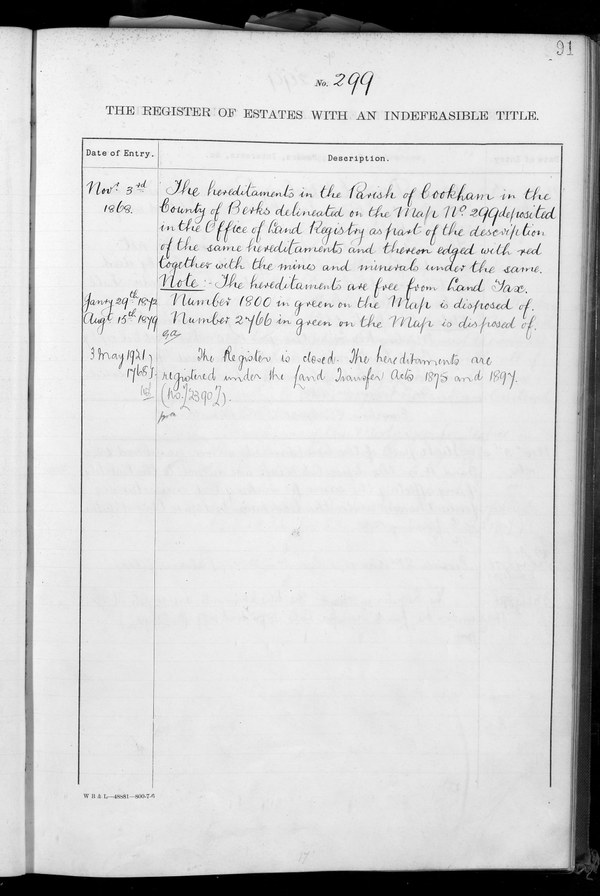 91
No. 299
THE REGISTER OF ESTATES WITH AN INDEFEASIBLE TITLE.
Date of Entry. Description.
Novr. 3rd The hereditaments in the Parish of Cookham in the
1868. County of Berks delineated on the Map No. 299 deposited
in the Office of Land Registry as part of the description
of the same hereditaments and thereon edged with red
together with the mines and minerals under the same.
Note:- The hereditaments are free from Land Tax.
Janry 29th 1872 Number 1800 in green on the Map is disposed of.
Augt 15th 1879 Number 2766 in green on the Map is disposed of.
3 May 1921 The Register is closed. The hereditaments are
registered under the Land Transfer Acts 1875 and 1897.
W B & L.